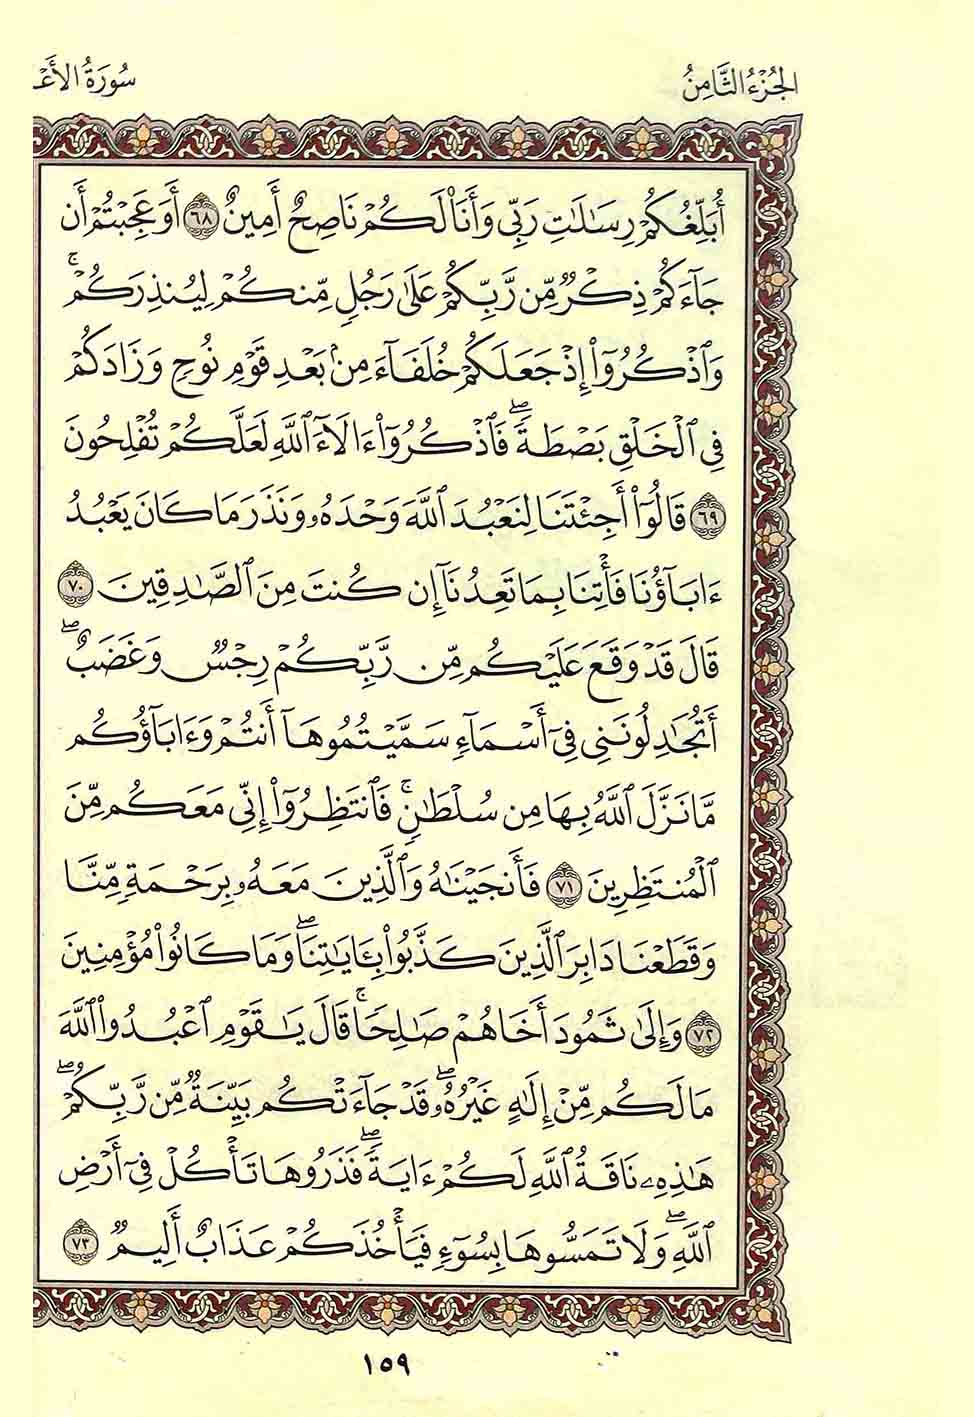 الجُزْءُ الثَّامِنُ
سُورَةُ الأَعْـ
أُبَلِّغُكُمْ رِسَٰلَٰتِ رَبِّى وَأَنَا۠ لَكُمْ نَاصِحٌ أَمِينٌ ٦٨ أَوَعَجِبْتُمْ أَن
جَآءَكُمْ ذِكْرٌ مِّن رَّبِّكُمْ عَلَىٰ رَجُلٍ مِّنكُمْ لِيُنذِرَكُمْ ۚ
وَٱذْكُرُوٓا۟ إِذْ جَعَلَكُمْ خُلَفَآءَ مِنۢ بَعْدِ قَوْمِ نُوحٍ وَزَادَكُمْ
فِى ٱلْخَلْقِ بَصْۜطَةً ۖ فَٱذْكُرُوٓا۟ ءَالَآءَ ٱللَّهِ لَعَلَّكُمْ تُفْلِحُونَ
٦٩ قَالُوٓا۟ أَجِئْتَنَا لِنَعْبُدَ ٱللَّهَ وَحْدَهُۥ وَنَذَرَ مَا كَانَ يَعْبُدُ
ءَابَآؤُنَا فَأْتِنَا بِمَا تَعِدُنَآ إِن كُنتَ مِنَ ٱلصَّٰدِقِينَ ٧٠
قَالَ قَدْ وَقَعَ عَلَيْكُم مِّن رَّبِّكُمْ رِجْسٌ وَغَضَبٌ ۖ
أَتُجَٰدِلُونَنِى فِىٓ أَسْمَآءٍ سَمَّيْتُمُوهَآ أَنتُمْ وَءَابَآؤُكُم
مَّا نَزَّلَ ٱللَّهُ بِهَا مِن سُلْطَٰنٍ ۚ فَٱنتَظِرُوٓا۟ إِنِّى مَعَكُم مِّنَ
ٱلْمُنتَظِرِينَ ٧١ فَأَنجَيْنَٰهُ وَٱلَّذِينَ مَعَهُۥ بِرَحْمَةٍ مِّنَّا
وَقَطَعْنَا دَابِرَ ٱلَّذِينَ كَذَّبُوا۟ بِـَٔايَٰتِنَا ۖ وَمَا كَانُوا۟ مُؤْمِنِينَ
٧٢ وَإِلَىٰ ثَمُودَ أَخَاهُمْ صَٰلِحًا ۗ قَالَ يَٰقَوْمِ ٱعْبُدُوا۟ ٱللَّهَ
مَا لَكُم مِّنْ إِلَٰهٍ غَيْرُهُۥ ۖ قَدْ جَآءَتْكُم بَيِّنَةٌ مِّن رَّبِّكُمْ ۖ
هَٰذِهِۦ نَاقَةُ ٱللَّهِ لَكُمْ ءَايَةً ۖ فَذَرُوهَا تَأْكُلْ فِىٓ أَرْضِ
ٱللَّهِ ۖ وَلَا تَمَسُّوهَا بِسُوٓءٍ فَيَأْخُذَكُمْ عَذَابٌ أَلِيمٌ ٧٣
١٥٩